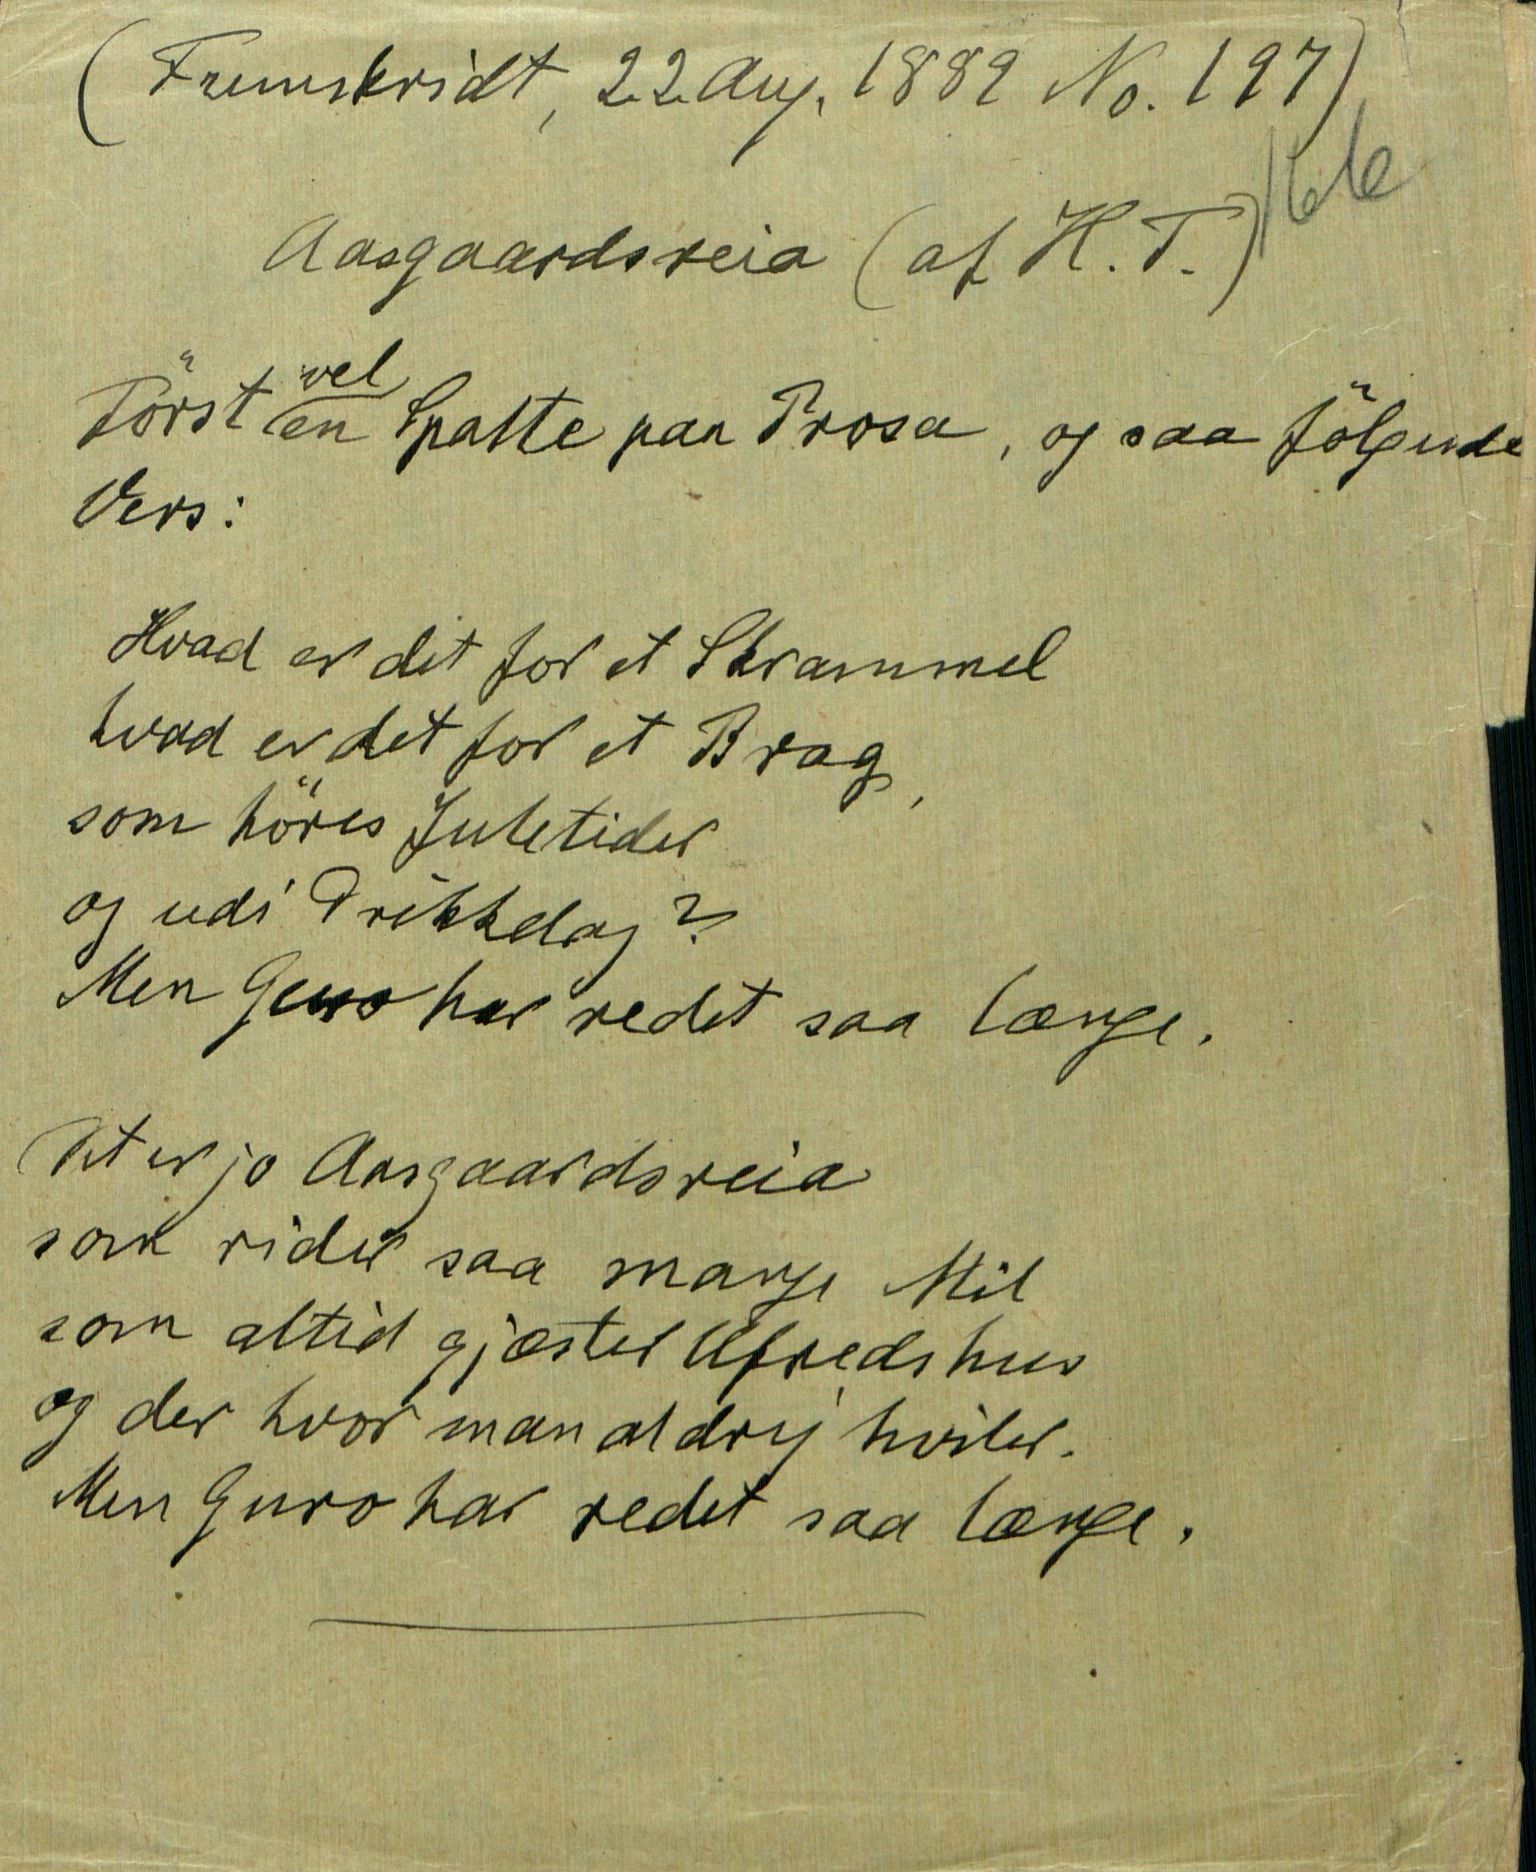 (Fremskridt, 22 Aug. 1889 No. 197)
166
Aasgaardsreia (af H. T.)
vel
Först en Spalte paa Prosa, og saa fölgende
Vers:
Hvad er det for et Skrammel
hvad er det for et Brag,
som höres Juletider
og udi Drikkelag?
Men Guro har redet saa længe.
Det er jo Aasgaardsreia
som rider saa mange Mil
som altid gjæster Ufredshus
og der hvor man aldrig hviler.
Men Guro har redet saa længe.